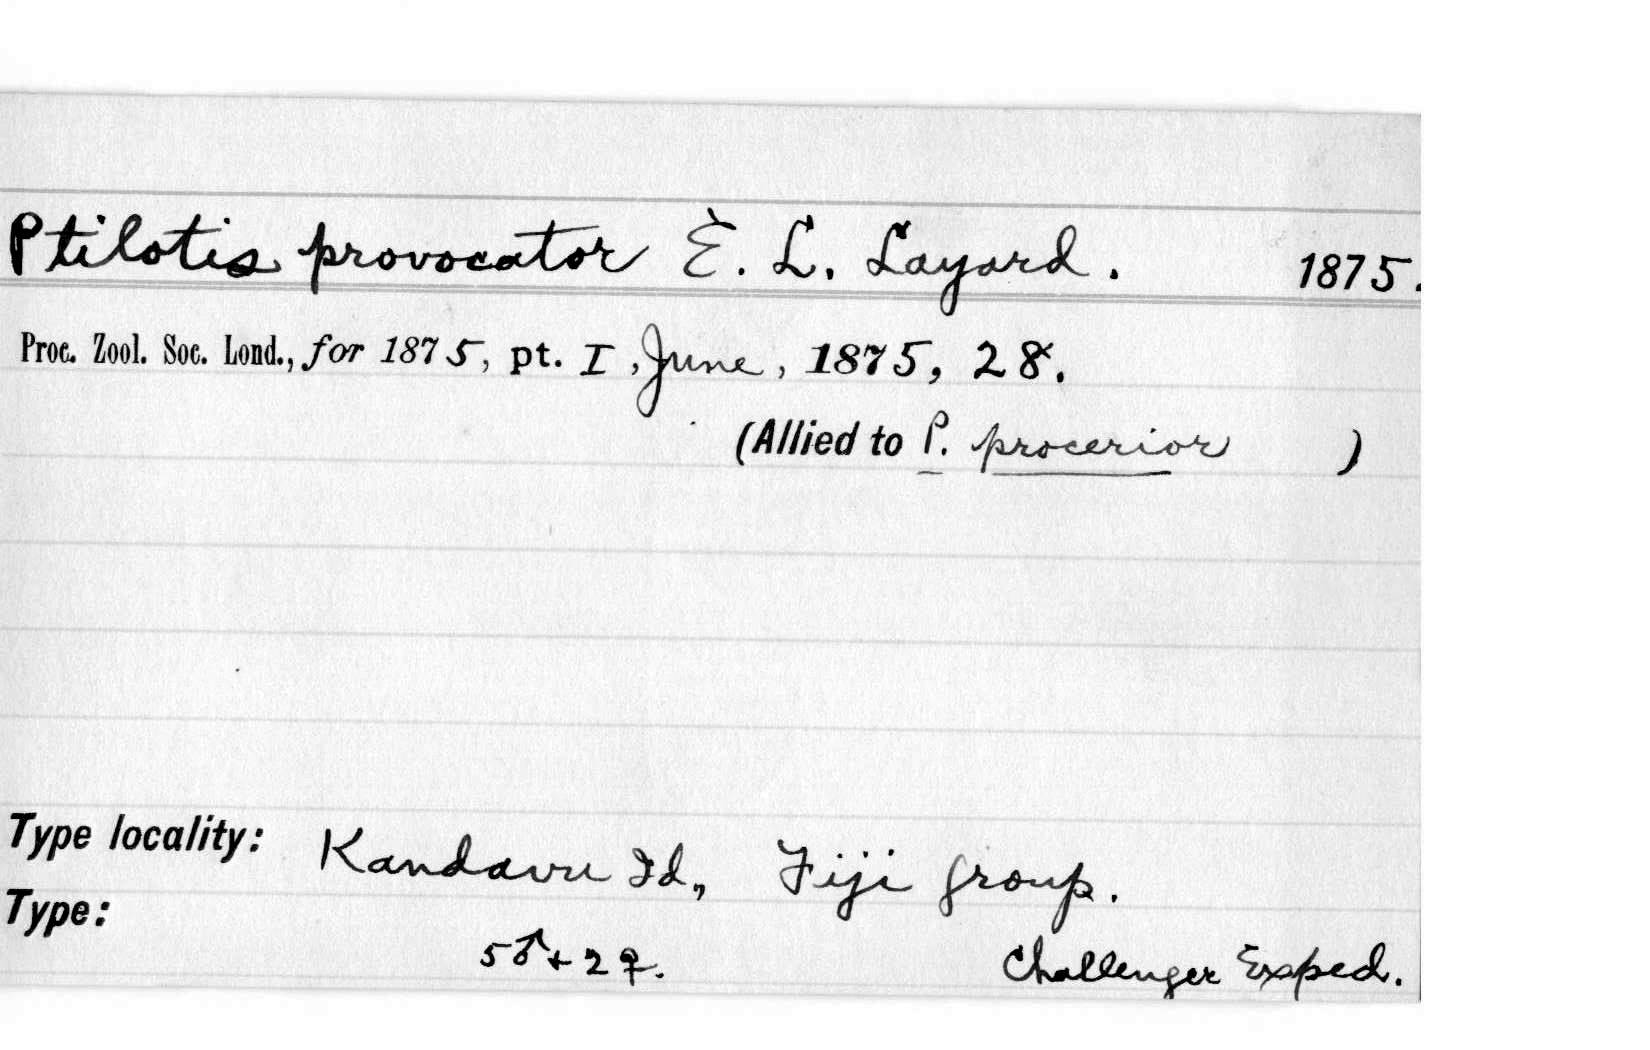 Ptilotis provocator E. L. Layard. 1875.
Proc. Zool. Soc. Lond., for 1875, pt. I, June, 1875, 28.
(Allied to P. procerior )
Type locality: Kandavu Id., Fiji group.
Type:
5♂+2♀. Challenger Exped.